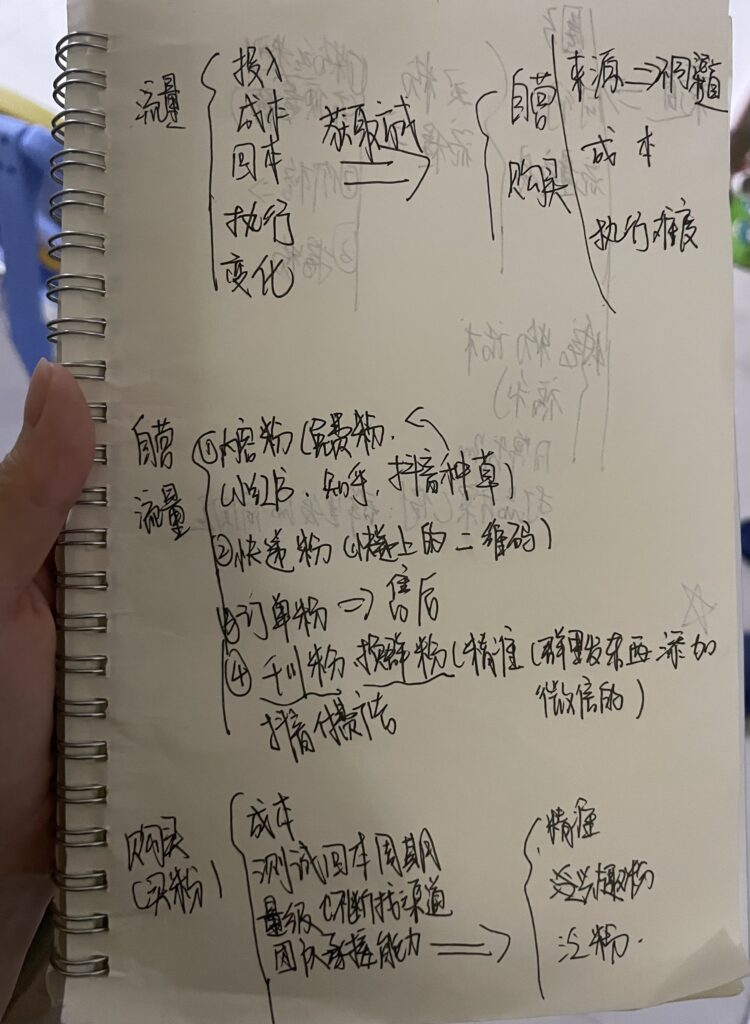 流量
投入
成本
回本
执行
变化
获取方式
自营
购买
来源 ⇒ 不同渠道
成本
执行难度
自营
流量
①内容粉(免费粉.
小红书、知乎、抖音种草)
②快递粉(快递上的二维码)
③订单粉 ⇒ 售后
④千川粉 换群粉(精准(群里发东西添加
微信的)
抖音付费广告
购买
(买粉)
成本
测试回本周期
量级(不断找渠道
团队承接能力
精准
泛粉.